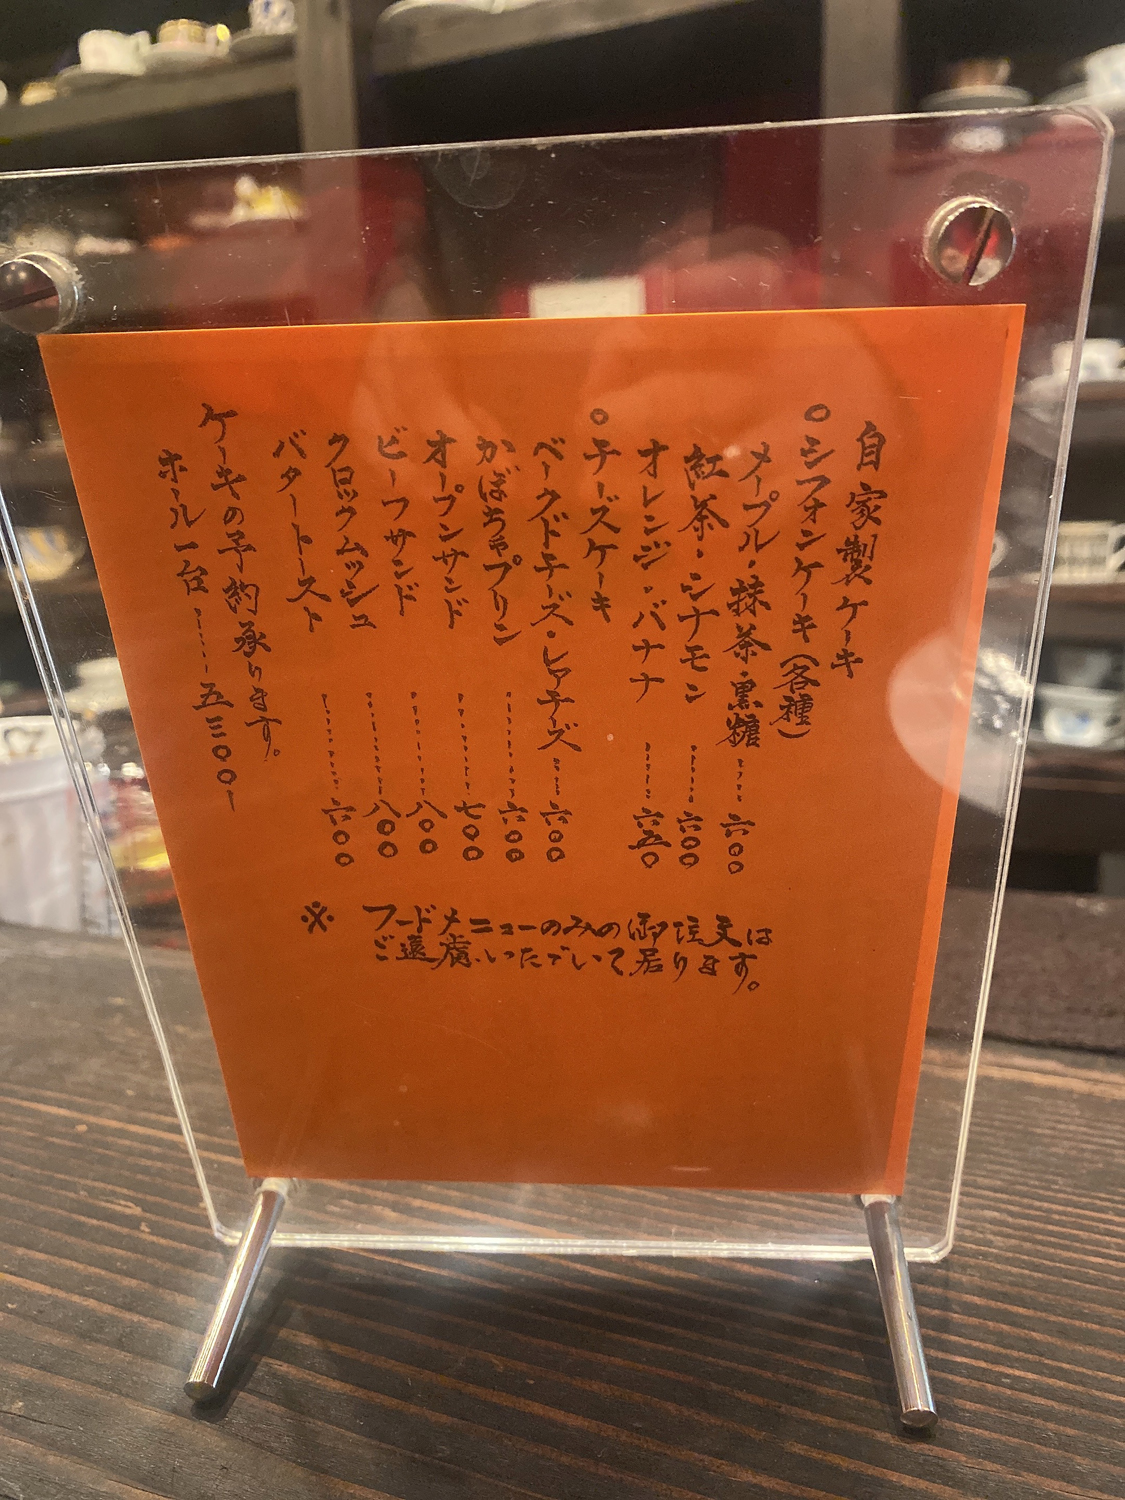 自家製ケーキ
○シフォンケーキ(各種)
メープル・抹茶・黒糖……六〇〇
紅茶・シナモン……六〇〇
オレンジ・バナナ……六五〇
○チーズケーキ
ベークドチーズ・レアチーズ……六〇〇
かぼちゃプリン……六〇〇
オープンサンド……七〇〇
ビーフサンド……八〇〇
クロックムッシュ……八〇〇
バタートースト……六〇〇
ケーキの予約承ります。
ホール一台……五三〇〇ー
※フードメニューのみの御注文は
ご遠慮いただいて居ります。